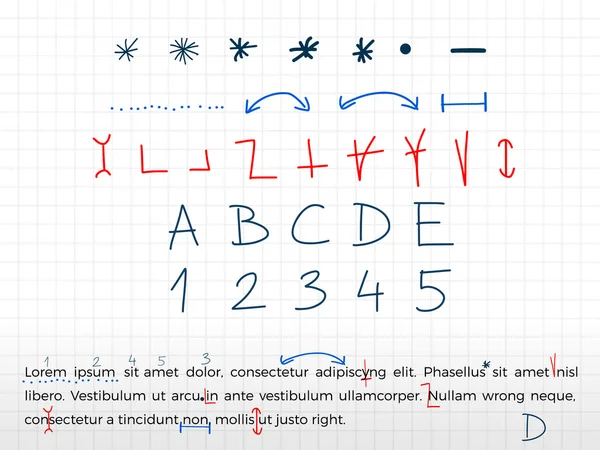 A B C D E
1 2 3 4 5
1 2 4 5 3
Lorem ipsum sit amet dolor, consectetur adipiscyng elit. Phasellus* sit amet nisl
libero. Vestibulum ut arcu.in ante vestibulum ullamcorper. Nullam wrong neque,
consectetur a tincidunt non, mollis ut justo right.
D